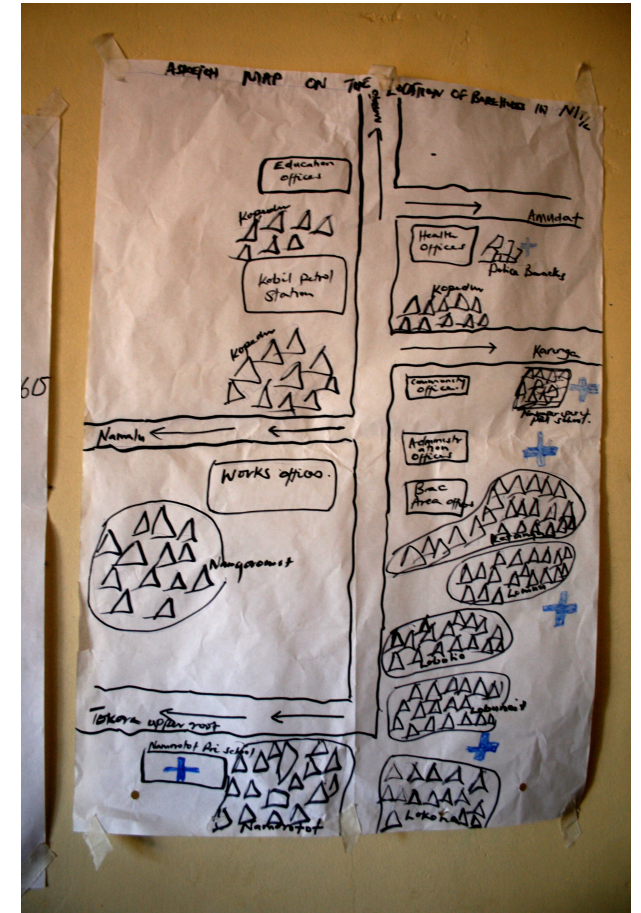 A SKETCH MAP ON THE LOCATION OF BOREHOLES IN N/T/C
Education
offices
Kopedur
Kobil Petrol
Station
Kopedur
Namalu
Works offices.
Tokora upper root
Namorotot Pri school
Namorotot
Amudat
Health
Offices
Police Barracks
Kopedur
Community
Offices
Pri school.
Administr
ation
Offices
Brac
Area offices
Katanga
Lobolio
60